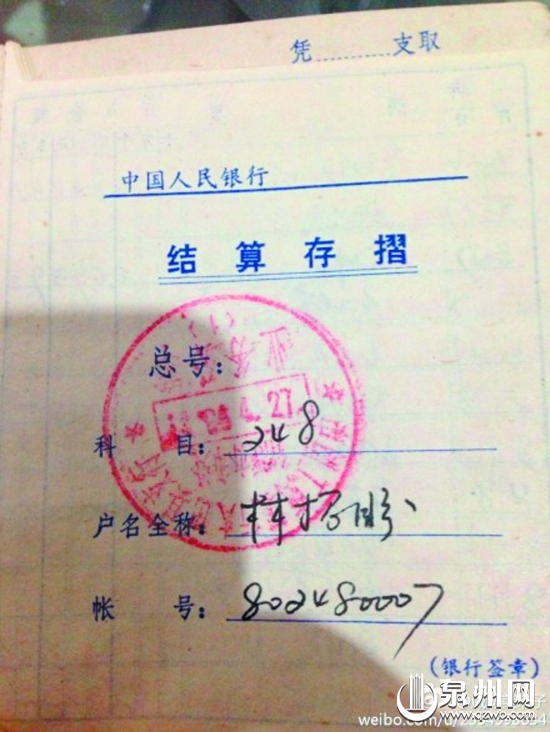 凭 支取
中国人民银行
结算存摺
总号：
业务
27
科 目：248
户名全称：林
帐 号：802480007
(银行签章)
泉州网
www.qzwb.com
weibo.com/u/